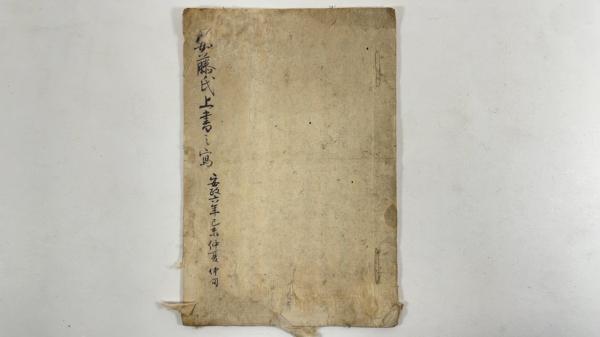 加藤氏上書之写
安政六年己未仲夏仲旬